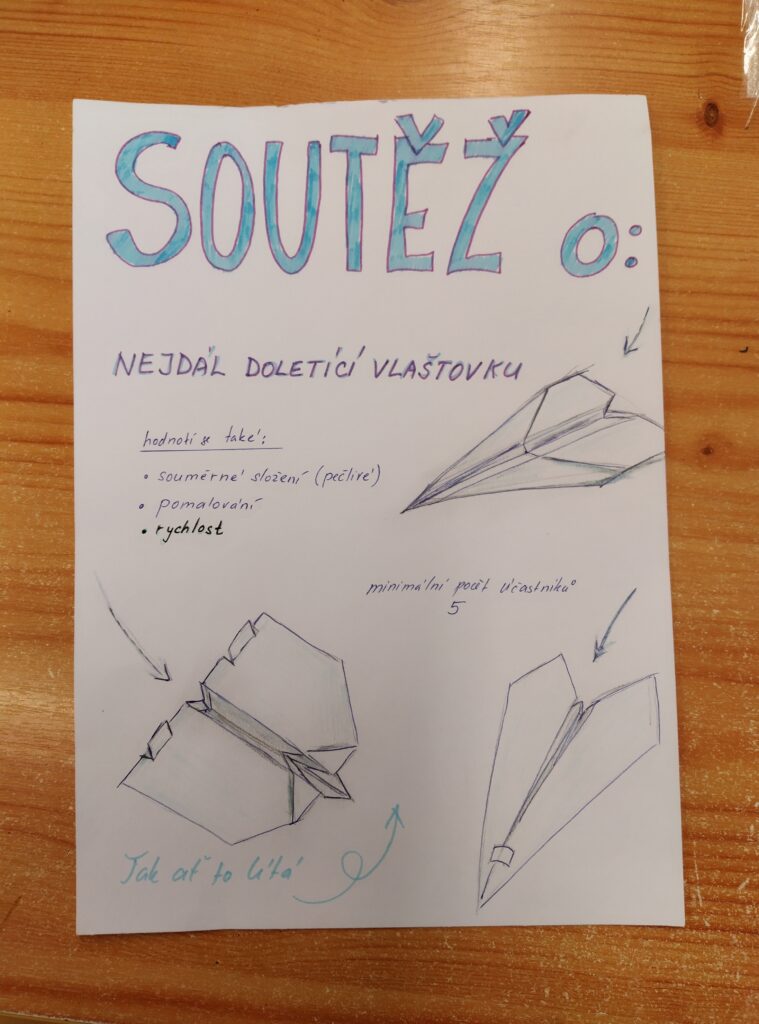 SOUTĚŽ o:
NEJDÁL DOLETÍCÍ VLAŠTOVKU
hodnotí se také:
• souměrné složení (pečlivé)
• pomalování
• rychlost
minimální počet účastníků
5
Tak ať to lítá